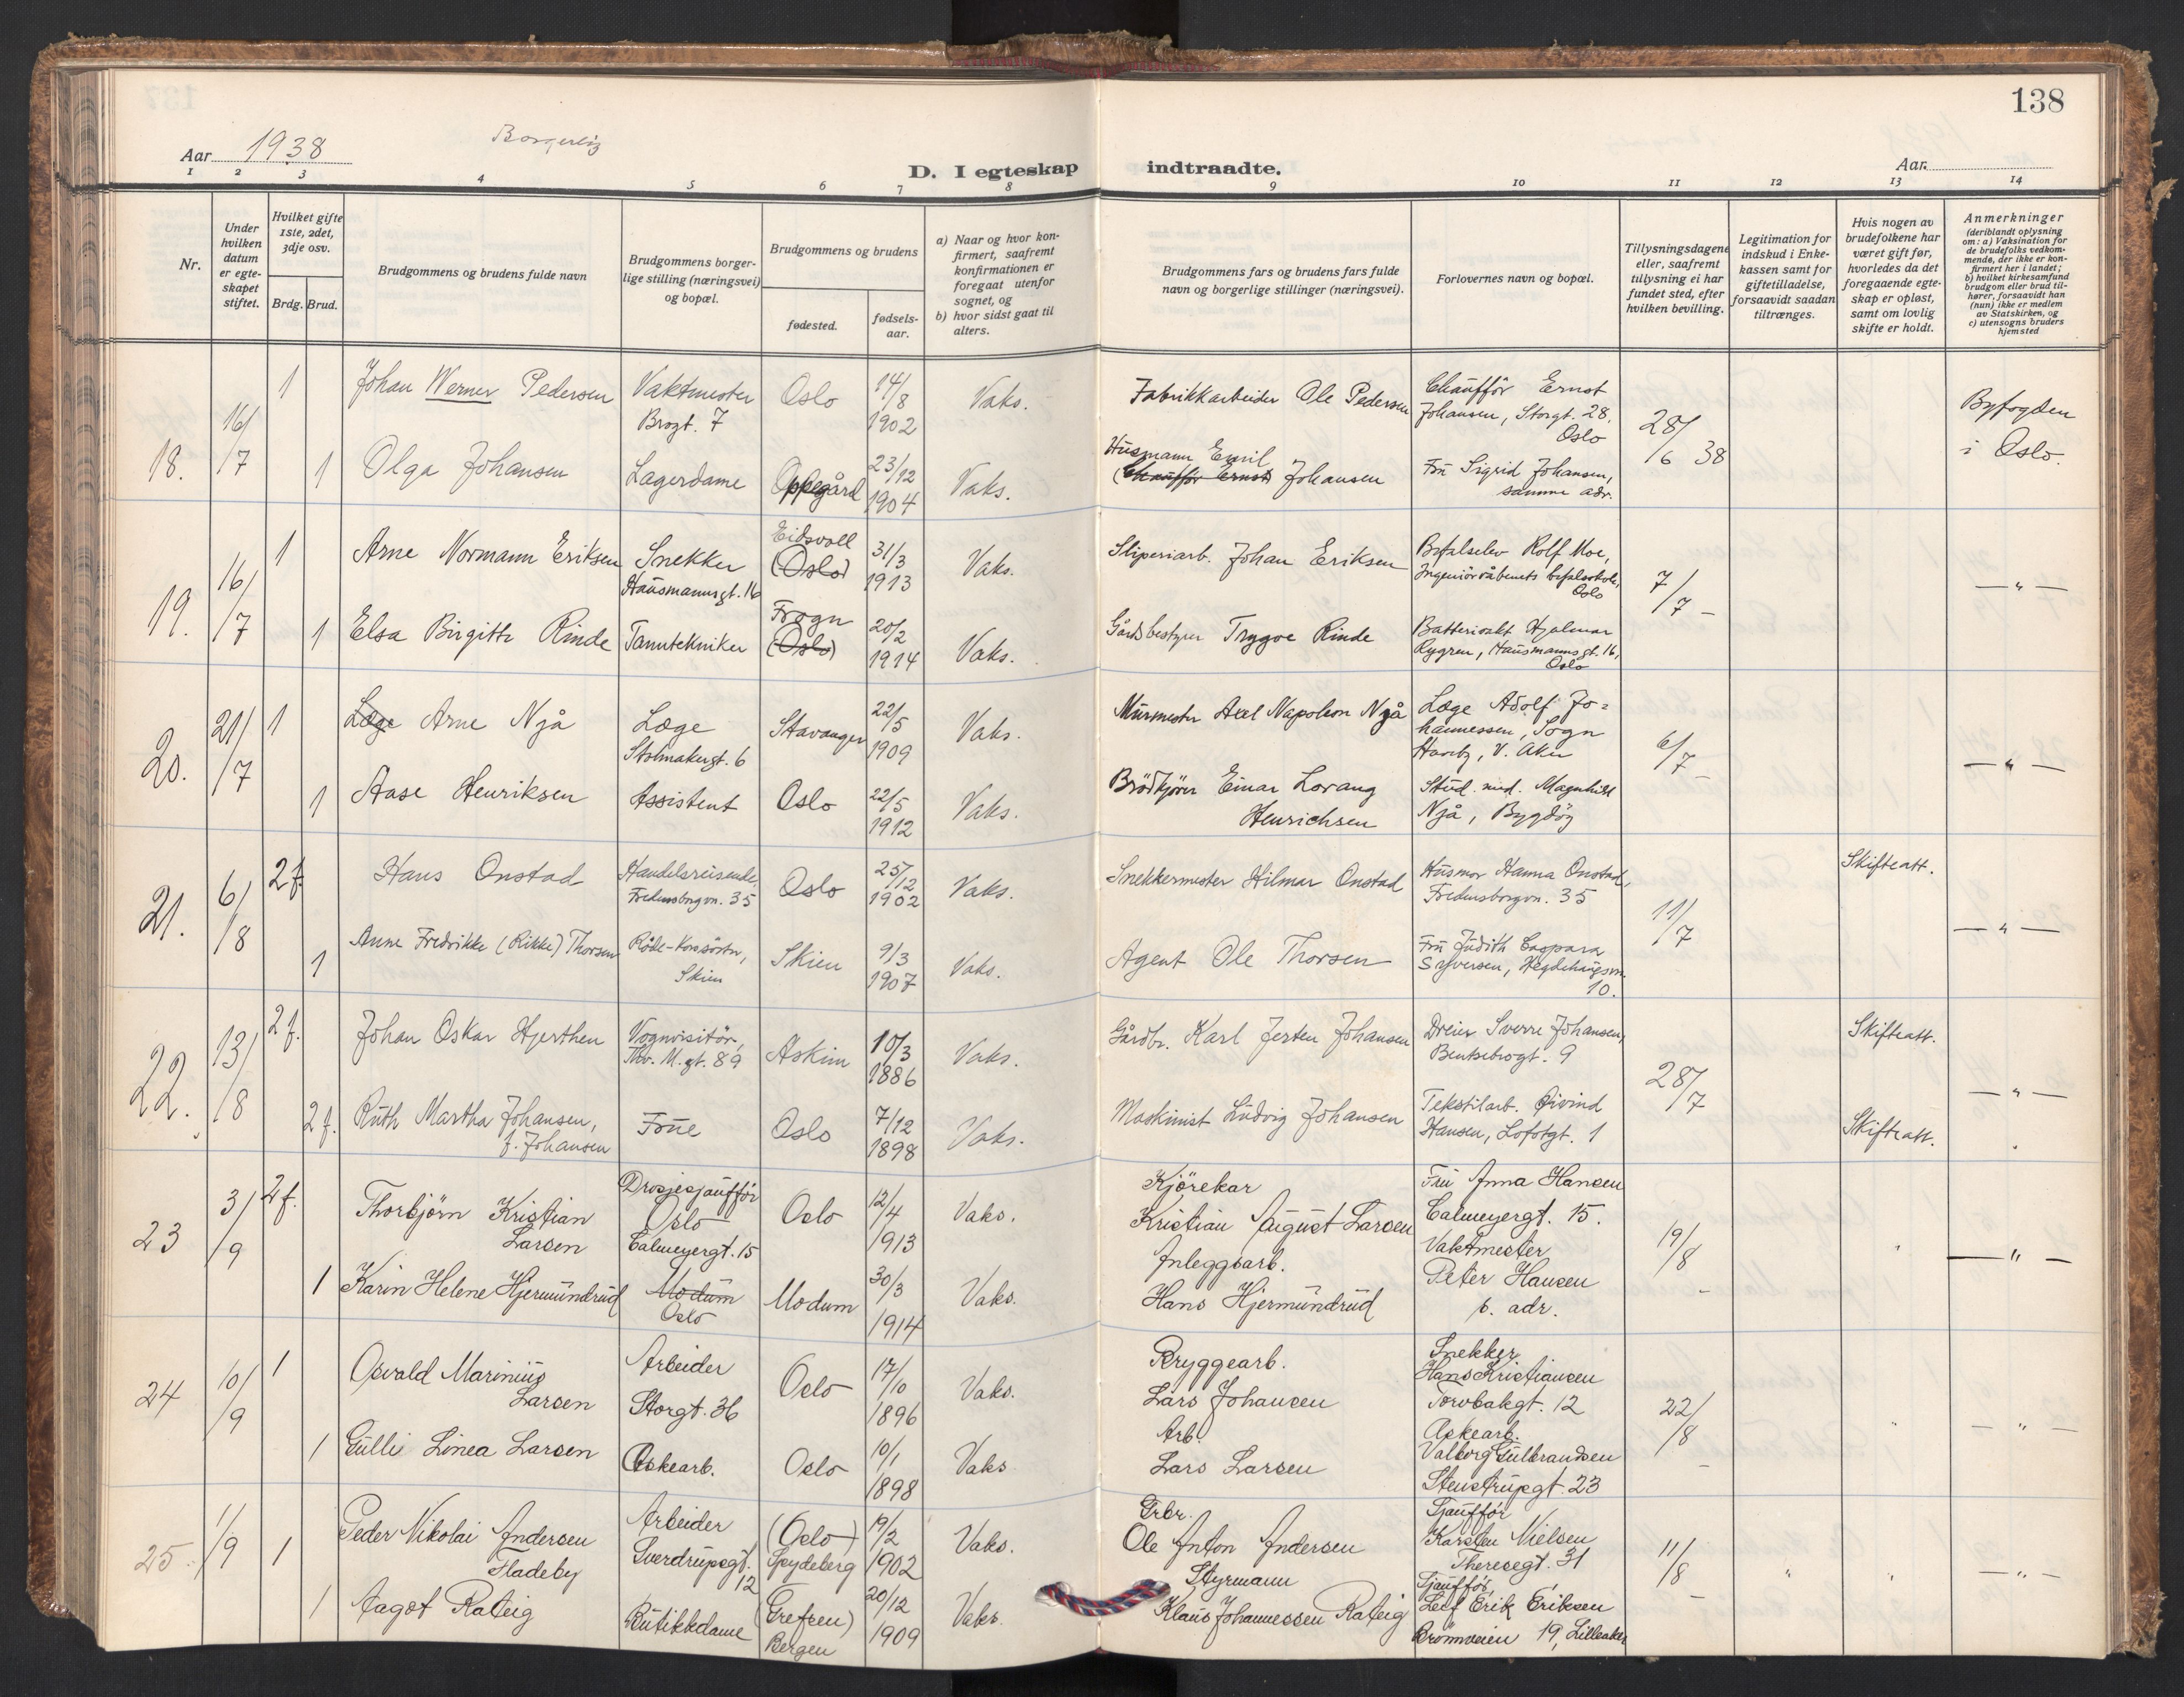 138
Aar 1938
Borgerlig
D. I egteskap indtraadte.
Aar
1 2 3 4 5 6 7 8 9 10 11 12 13 14
Nr.
Under hvilken datum er egte-skapet stiftet.
Hvilket gifte 1ste, 2det, 3dje osv.
Brdg. Brud.
Brudgommens og brudens fulde navn
Brudgommens borger-lige stilling (næringsvei) og bopæl.
Brudgommens og brudens
fødested.
fødsels-aar.
a) Naar og hvor kon-firmert, saafremt konfirmationen er foregaat utenfor sognet, og
b) hvor sidst gaat til alters.
Brudgommens fars og brudens fars fulde navn og borgerlige stillinger (næringsvei).
Forlovernes navn og bopæl.
Tillysningsdagene eller, saafremt tillysning ei har fundet sted, efter hvilken bevilling.
Legitimation for indskud i Enke-kassen samt for giftetilladelse, forsaavidt saadan tiltrænges.
Hvis nogen av brudefolkene har været gift før, hvorledes da det foregaaende egte-skap er opløst, samt om lovlig skifte er holdt.
Anmerkninger (deriblandt oplysning om: a) Vaksination for de brudefolks vedkom-mende, der ikke er kon-firmert her i landet; b) hvilket kirkesamfund brudgom eller brud til-hører, forsaavidt han (hun) ikke er medlem av Statskirken, og c) utensogns bruders hjemsted
18. 16/7
1 Johan Werner Pedersen Vaktmester Brogt. 7 Oslo 14/8 1902 Vaks. Fabrikkarbeider Ole Pedersen Chaufför Ernst Johansen, Storgt. 28, Oslo 28/6 38 Byfogden i Oslo.
1 Olga Johansen Lagerdame Oppegård 23/12 1904 Vaks. Husmann Emil (Chauffør Ernst) Johansen Fru Sigrid Johansen, samme adr.
19. 16/7
1 Arne Normann Eriksen Snekker Hausmannsgt. 16 Eidsvoll (Oslo) 31/3 1913 Vaks. Sliperiarb. Johan Eriksen Befalselev Rolf Moe, Ingeniörvåbenets befalsskole, Oslo 7/7 – — " —
1 Elsa Birgitte Rinde Tanntekniker Frogn (Oslo) 20/2 1914 Vaks. Gårdsbestyrer Trygve Rinde Batterivakt Hjalmar Rygren, Hausmannsgt. 16, Oslo
20. 21/7
1 Læge Arne Njå Læge Stolmakergt. 6 Stavanger 22/5 1909 Vaks. Murmester Axel Napoleon Njå Læge Adolf Jo=hannessen, Sogn Haveby, V. Aker 6/7 – — " —
1 Aase Henriksen Assistent Oslo 22/5 1912 Vaks. Brödkjörer Einar Lorang Henrichsen Stud. med. Magnhild Njå, Bygdöy
21. 6/8
2 f. Hans Onstad Handelsreisende, Fredensborgvn. 35 Oslo 25/12 1902 Vaks. Snekkermester Hilmar Onstad Husmor Hanna Onstad, Fredensborgvn. 35 11/7 Skifteatt. — " —
1 Anne Fredrikke (Rikke) Thorsen Røde-Korssöster, Skien Skien 9/3 1907 Vaks. Agent Ole Thorsen Fru Judith Caspara Syversen, Hegdehaugsvn. 10.
22. 13/8
2 f. Johan Oskar Hjerthen Vognvisitör, Thv. M. gt. 89 Askim 10/3 1886 Vaks. Gårdbr. Karl Jerten Johansen Dreier Sverre Johansen, Bentsebrogt. 9 28/7 Skifteatt. — " —
2 f. Ruth Martha Johansen, f. Johansen Frue Oslo 7/12 1898 Vaks. Maskinist Ludvig Johansen Tekstilarb. Øivind Hansen, Lofotgt. 1 Skifteatt.
23 3/9
2 f. Thorbjörn Kristian Larsen Drosjesjaufför Oslo Calmeyergt. 15 Oslo 12/4 1913 Vaks. Kjörekar Kristian August Larsen Fru Anna Hansen Calmeyergt. 15. 19/8 – — " —
1 Karin Helene Hjermundrud Modum Oslo Modum 30/3 1914 Vaks. Anleggsarb. Hans Hjermundrud Vaktmester Peter Hansen s. adr.
24 10/9
1 Osvald Marinius Larsen Arbeider Storgt. 36 Oslo 17/10 1896 Vaks. Bryggearb. Lars Johansen Snekker Hans Kristiansen Torvbakgt. 12 22/8 – — " —
1 Gulli Linea Larsen Eskearb. Oslo 10/1 1898 Vaks Arb. Lars Larsen Eskearb. Valborg Gulbrandsen Stenstrupgt. 23
25. 1/9
1 Peder Nikolai Andersen Fladeby Arbeider Sverdrupsgt. 12 (Oslo) Spydeberg 19/2 1902 Vaks. Grbr. Ole Anton Andersen Sjaufför Karsten Nielsen Theresegt. 31 11/8 – " " — " —
1 Aagot Rateig Butikkdame (Grefsen) Bergen 20/12 1909 Vaks. Styrmann Klaus Johannessen Rateig Sjaufför Leif Erik Eriksen Brönnveien 19, Lilleaker